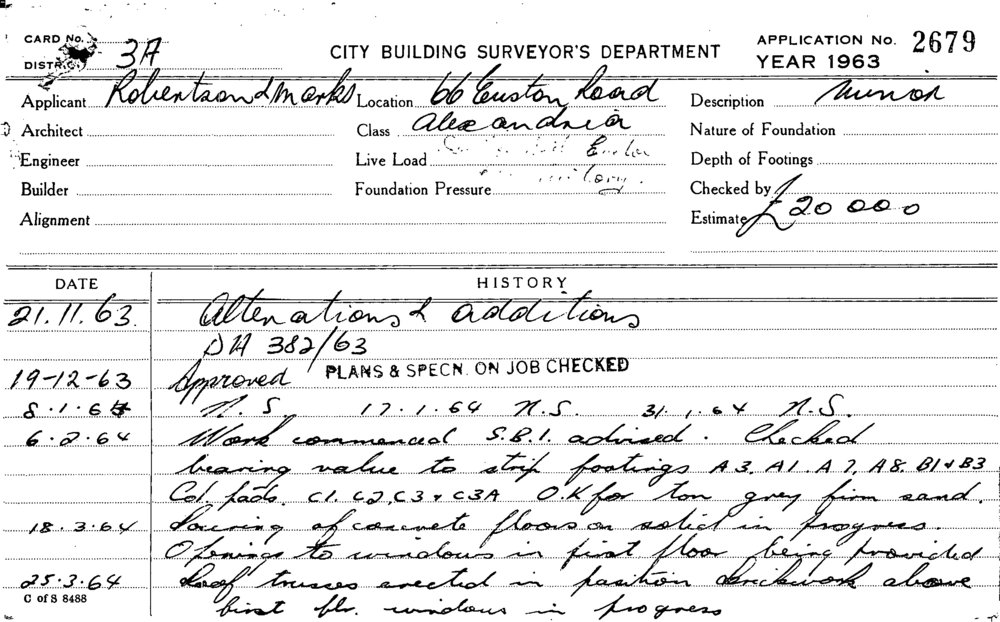 CARD No.
DISTRICT 3A
CITY BUILDING SURVEYOR'S DEPARTMENT
APPLICATION No. 2679
YEAR 1963
Applicant Robertson & Marks Location 66 Euston Road Description Minor
Architect Class Alexandria Nature of Foundation
Engineer Live Load Depth of Footings
Builder Foundation Pressure Checked by
Alignment Estimate £20 000
DATE HISTORY
21.11.63. Alterations & additions
DA 382/63
19-12-63 Approved PLANS & SPECN. ON JOB CHECKED
8.1.64 N.S. 17.1.64 N.S. 31.1.64 N.S.
6.2.64 Work commenced S.B.I. advised. Checked
bearing value to strip footings A3, A1, A7, A8, B1 & B3
Col. pads. C1, C2, C3 & C3A O.K for ton grey firm sand.
18.3.64 Pouring of concrete floors on solid in progress.
Openings to windows in first floor being provided
25.3.64 Roof trusses erected in position brickwork above
first flr. windows in progress
C of S 8488